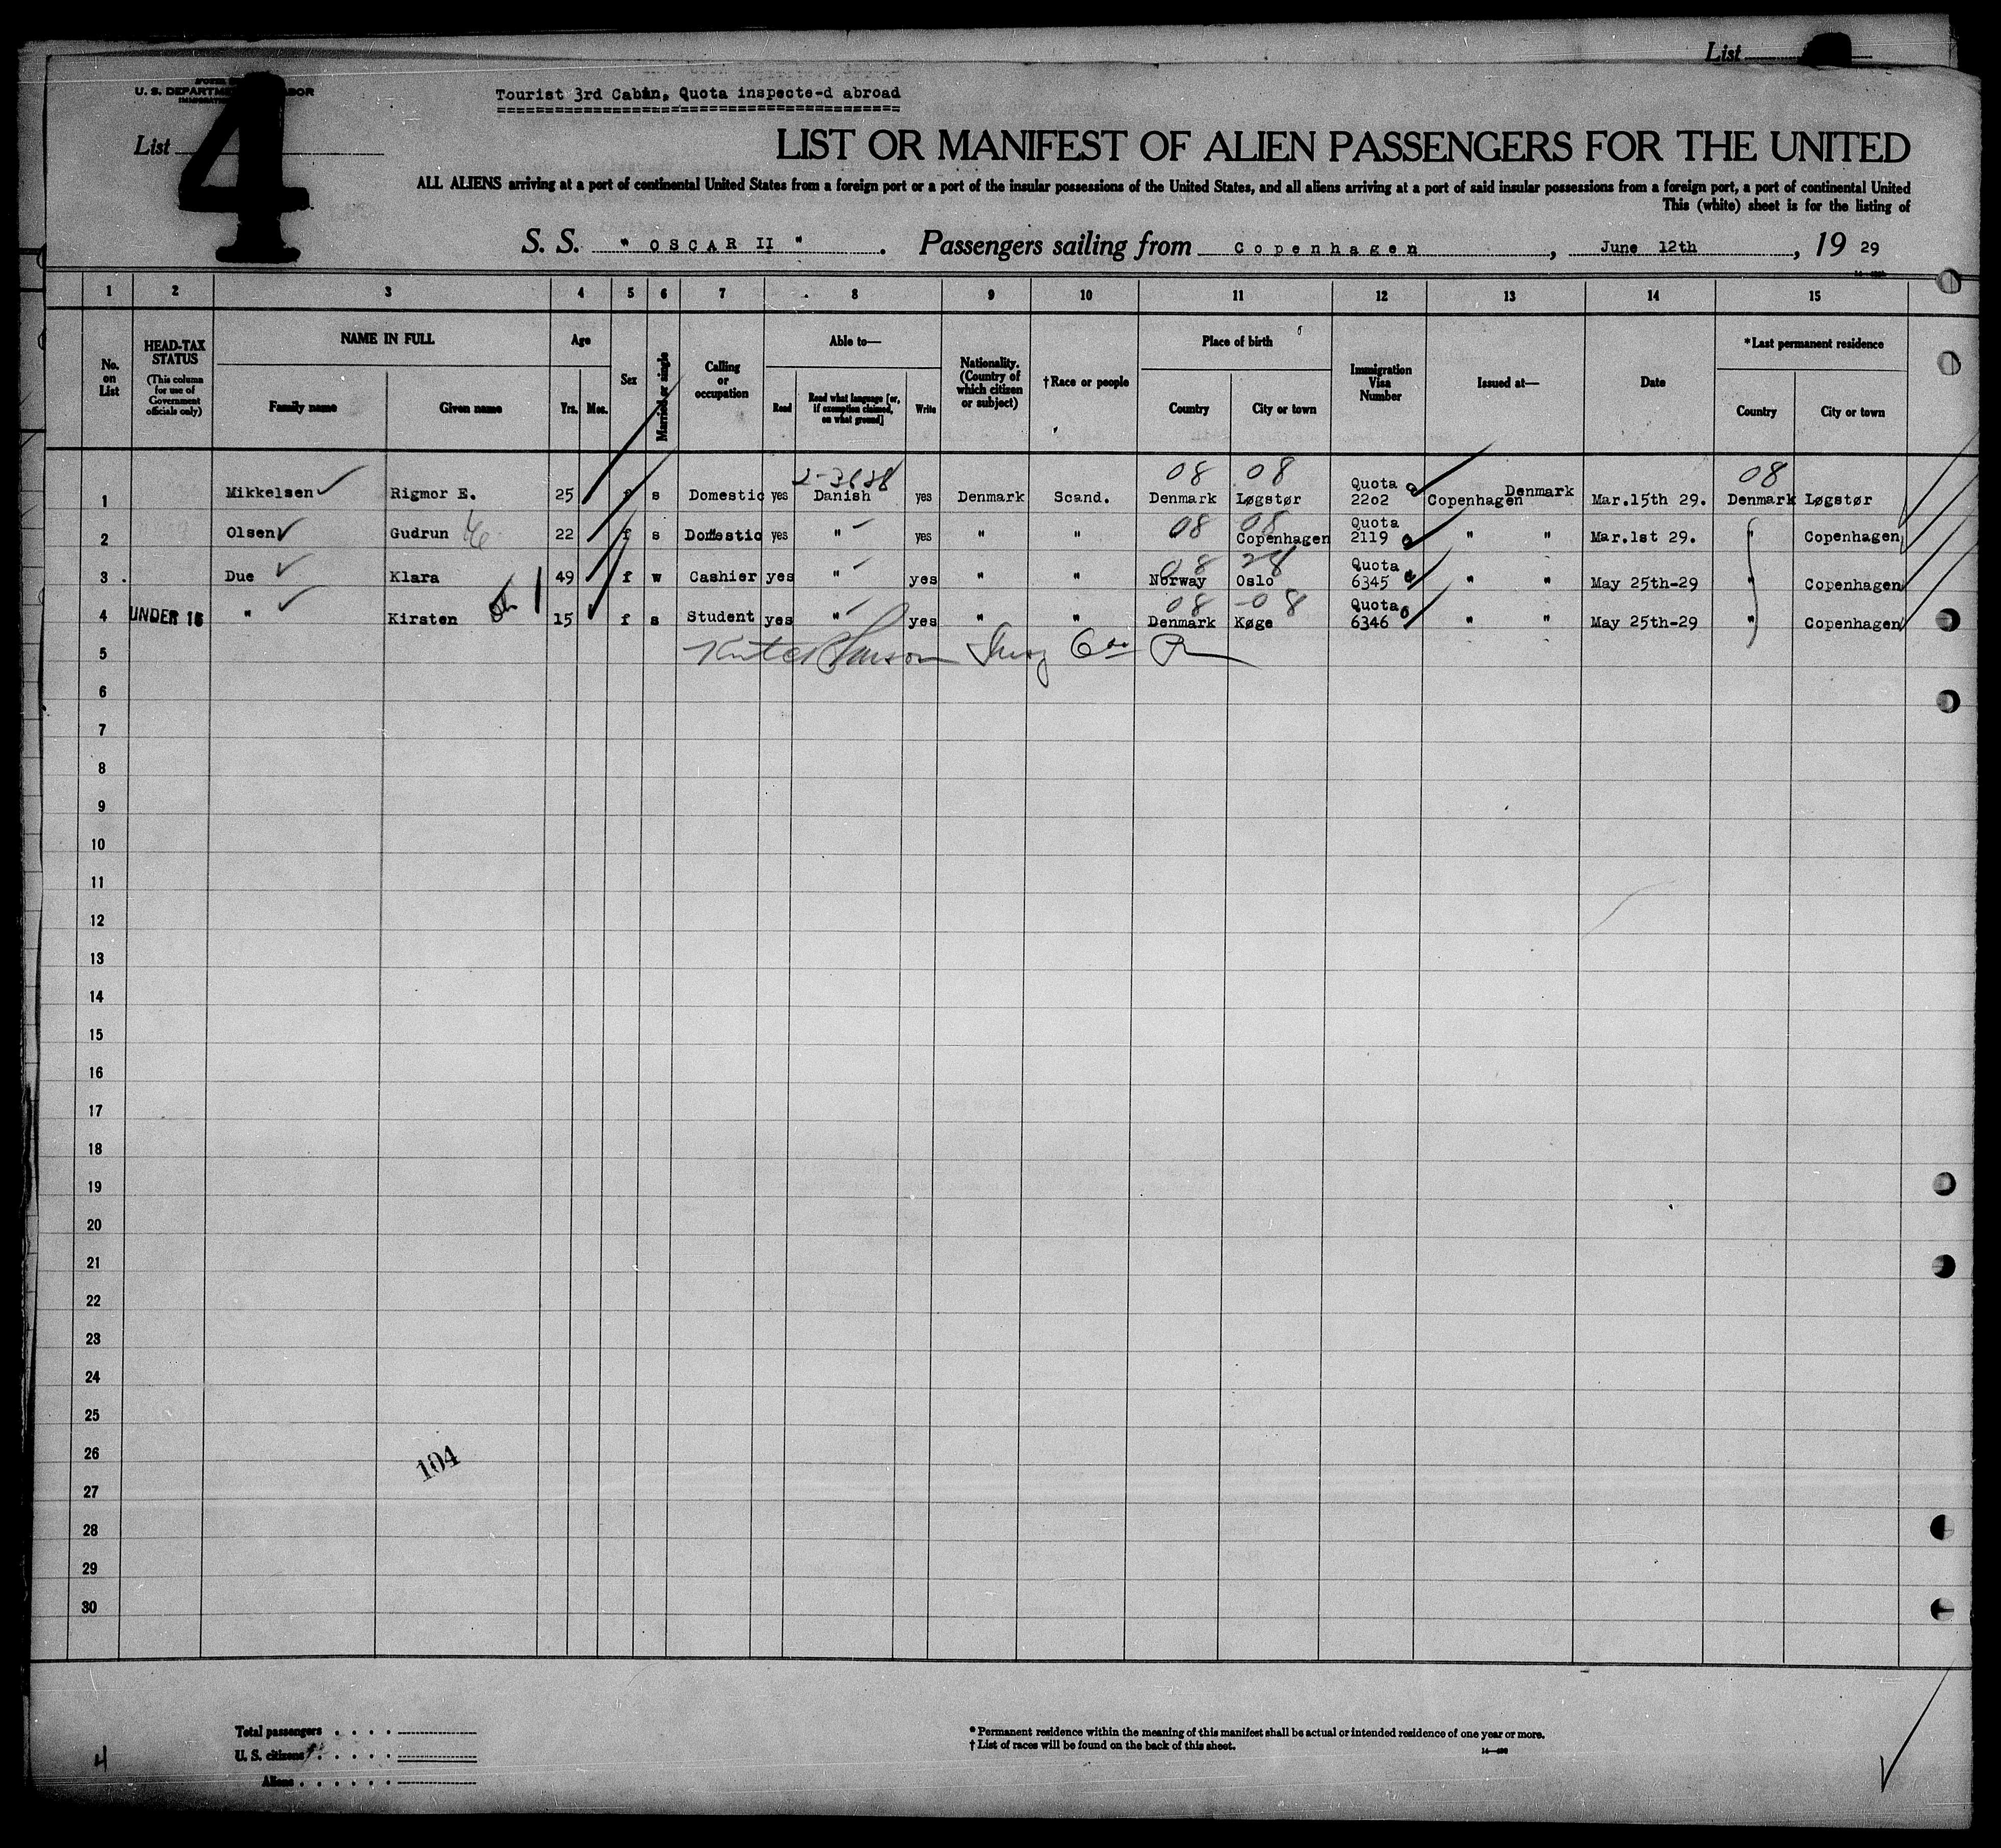 List
U. S. DEPARTMENT LABOR
Tourist 3rd Cabin, Quota inspecte-d abroad
List 4
LIST OR MANIFEST OF ALIEN PASSENGERS FOR THE UNITED
ALL ALIENS arriving at a port of continental United States from a foreign port or a port of the insular possessions of the United States, and all aliens arriving at a port of said insular possessions from a foreign port, a port of continental United
This (white) sheet is for the listing of
S. S. " OSCAR II " . Passengers sailing from Copenhagen , June 12th , 19 29
1 2 3 4 5 6 7 8 9 10 11 12 13 14 15
No. on List
HEAD-TAX STATUS (This column for use of Government officials only)
NAME IN FULL
Family name Given name
Age
Yrs. Mos.
Sex
Married or single
Calling or occupation
Able to—
Read Read what language [or, if exemption claimed, on what ground] Write
Nationality. (Country of which citizen or subject)
†Race or people
Place of birth
Country City or town
Immigration Visa Number
Issued at—
Date
*Last permanent residence
Country City or town
08 08 08
1 Mikkelsen Rigmor E. 25 f s Domestic yes Danish yes Denmark Scand. Denmark Løgstør Quota 2202 Copenhagen Denmark Mar.15th 29. Denmark Løgstør
08 08
2 Olsen Gudrun 22 f s Domestic yes " yes " " Copenhagen Quota 2119 " " Mar.1st 29. " Copenhagen
3 Due Klara 49 f w Cashier yes " yes " " Norway Oslo Quota 6345 " " May 25th-29 " Copenhagen
08 08
4 UNDER 16 " Kirsten 15 f s Student yes " yes " " Denmark Køge Quota 6346 " " May 25th-29 " Copenhagen
5
6
7
8
9
10
11
12
13
14
15
16
17
18
19
20
21
22
23
24
25
26
104
27
28
29
30
Total passengers
U. S. citizens
Aliens
4
* Permanent residence within the meaning of this manifest shall be actual or intended residence of one year or more.
† List of races will be found on the back of this sheet.